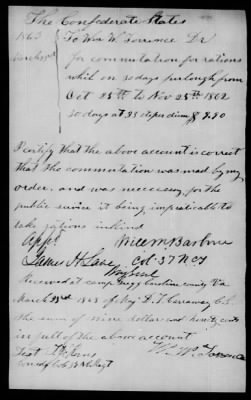 The Confederate States
1863 To Wm W. Torrance Dr
March 23d for commutation for rations
while on 30 days furlough from
Oct 25th to Nov 25th 1862
30 days at 33 cts per diem $ 9.90
I certify that the above account is correct
that the commutation was made by my
order, and was necessary for the
public service it being impraticable to
take rations in kind
Appd
James H Lane Col 37 N C T
Brig Genl
Received at camp Gregg Caroline county Va
March 23d 1863 of Maj D. T. Carraway C.S.
the sum of nine dollars and ninety cents
in full of the above account
Test Wm W. Torrance